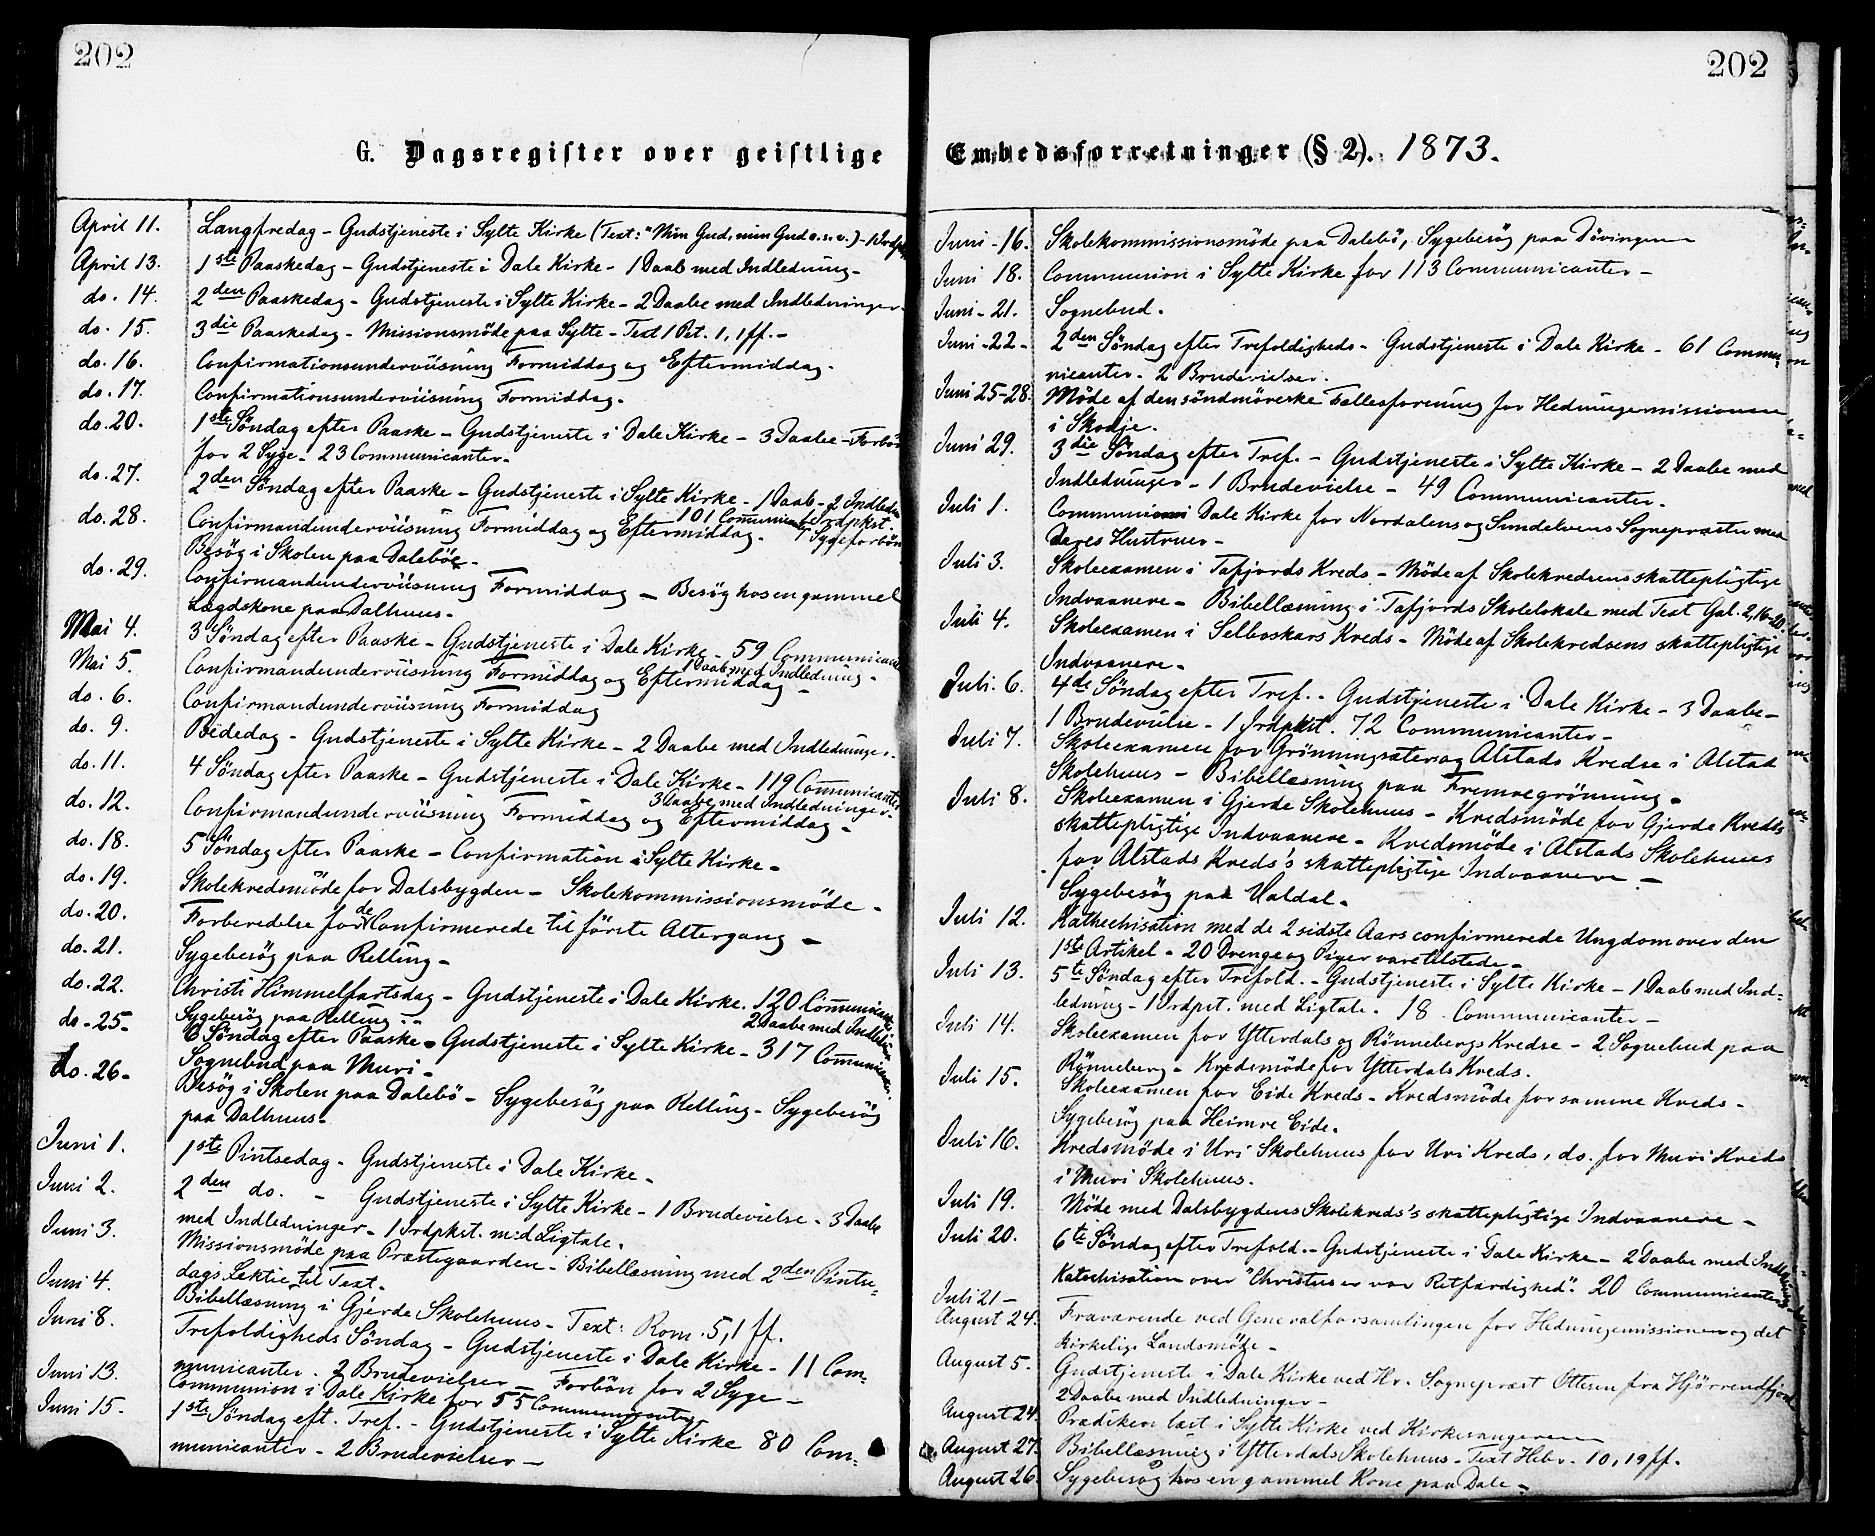 202
G. Dagsregister over geistlige
April 11. Langfredag - Gudstjeneste i Sylte Kirke (Text: "Min Gud, min Gud o.s.v.) - 1 Jrdp
April 13. 1ste Paaskedag - Gudstjeneste i Dale Kirke - 1 Daab med Indledning -
do. 14. 2den Paaskedag - Gudstjeneste i Sylte Kirke - 2 Daabe med Indledninger.
do. 15. 3die Paaskedag - Missionsmöde paa Sylte - Text 1 Pet. 1, 1 ff. -
do. 16. Confirmationsunderviisning Formiddag og Eftermiddag.
do. 17. Confirmationsunderviisning Formiddag.
do. 20. 1ste Söndag efter Paaske - Gudstjeneste i Dale Kirke - 3 Daabe - Forbön
for 2 Syge - 23 Communicanter.
do. 27. 2den Söndag efter Paaske - Gudstjeneste i Sylte Kirke - 1 Daab - 2 Indledn
101 Communicanter Jrdpkst.
do. 28. Confirmandunderviisning Formiddag og Eftermiddag. 1 Sygeforbön
Besög i Skolen paa Dalebö -
do. 29. Confirmandunderviisning Formiddag - Besög hos en gammel
Lægdskone paa Dalhuus -
Mai 4. 3 Söndag efter Paaske - Gudstjeneste i Dale Kirke - 59 Communicanter
1 Daab med Indledning -
Mai 5. Confirmandunderviisning Formiddag og Eftermiddag -
do. 6. Confirmandunderviisning Formiddag
do. 9. Bededag - Gudstjeneste i Sylte Kirke - 2 Daabe med Indledninger.
do. 11. 4 Söndag efter Paaske - Gudstjeneste i Dale Kirke - 119 Communicanter
3 Daabe med Indledninger.
do. 12. Confirmandunderviisning Formiddag og Eftermiddag -
do. 18. 5 Söndag efter Paaske - Confirmation i Sylte Kirke -
do. 19. Skolekredsmöde for Dalsbygden - Skolekommissionsmöde -
do. 20. Forberedelse for de Confirmerede til förste Altergang -
do. 21. Sygebesög paa Relling -
do. 22. Christi Himmelfartsdag - Gudstjeneste i Dale Kirke. 120 Communicanter
Sygebesög paa Relling - 2 Daabe med Indledn
do - 25 - 6 Söndag efter Paaske - Gudstjeneste i Sylte Kirke - 317 Communicanter.
Sognebud paa Muri -
do. 26 - Besög i Skolen paa Dalebö - Sygebesög paa Relling - Sygebesög
paa Dalhuus -
Juni 1. 1ste Pintsedag - Gudstjeneste i Dale Kirke -
Juni 2. 2den do. - Gudstjeneste i Sylte Kirke - 1 Brudevielse - 3 Daabe
med Indledninger - 1 Jrdpkst. med Ligtale.
Juni 3. Missionsmöde paa Præstegaarden - Bibellæsning med 2den Pintse-
dags Lektie til Text.
Juni 4. Bibellæsning i Gjerde Skolehuus - Text: Rom. 5, 1 ff.
Juni 8. Trefoldigheds Söndag - Gudstjeneste i Dale Kirke - 11 Com-
municanter. 2 Brudevielser - Forbön for 2 Syge -
Juni 13. Communion i Dale Kirke for 55 Communicanter
Juni 15. 1ste Söndag eft. Tref. - Gudstjeneste i Sylte Kirke 80 Com-
municanter - 2 Brudevielser -
202
Embedsforretninger (§ 2). 1873.
Juni - 16. Skolekommissionsmöde paa Dalebö, Sygebesög paa Dövingene
Juni 18. Communion i Sylte Kirke for 113 Communicanter -
Juni - 21. Sognebud.
Juni - 22 - 2den Söndag efter Trefoldigheds - Gudstjeneste i Dale Kirke - 61 Commu-
nicanter - 2 Brudevielser.
Juni 25-28. Möde af den söndmörske Fællesforening for Hedningemissionen
i Skodje.
Juni 29. 3die Söndag efter Tref. - Gudstjeneste i Sylte Kirke - 2 Daabe med
Indledninger - 1 Brudevielse - 49 Communicanter.
Juli 1. Communion i Dale Kirke for Nordalens og Sundelvens Sognepræster med
Deres Hustruer -
Juli 3. Skoleexamen i Tafjords Kreds - Möde af Skolekredsens skattepligtige
Indvaanere - Bibellæsning i Tafjords Skolelokale med Text Gal. 2, 16-20.
Juli 4. Skoleexamen i Selboskars Kreds - Möde af Skolekredsens skattepligtige
Indvaanere -
Juli. 6. 4de Söndag efter Tref. - Gudstjeneste i Dale Kirke - 3 Daabe -
1 Brudevielse - 1 Jrdpkst. 72 Communicanter -
Juli 7. Skoleexamen for Gröningsæter og Alstads Kredse i Alstad
Skolehuus - Bibellæsning paa Fremregröning -
Juli 8. Skoleexamen i Gjerde Skolehuus - Kredsmöde for Gjerde Kreds
skattepligtige Indvaanere - Kredsmöde i Alstads Skolehuus
for Alstads Kreds's skattepligtige Indvaanere -
Sygebesög paa Valdal.
Juli 12. Kathechisation med de 2 sidste Aars confirmerede Ungdom over den
1ste Artikel - 20 Drenge og Piger vare tilstede -
Juli 13. 5te Söndag efter Trefold. - Gudstjeneste i Sylte Kirke - 1 Daab med Ind-
ledning - 1 Jrdpst. med Ligtale. 18 Communicanter -
Juli 14. Skoleexamen for Ytterdals og Rönnebergs Kredse - 2 Sognebud paa
Rönneberg - Kredsmöde for Ytterdals Kreds.
Juli 15. Skoleexamen for Eide Kreds - Kredsmöde for samme Kreds -
Sygebesög paa Heimre Eide.
Juli 16. Kredsmöde i Uri Skolehuus for Uri Kreds, do. for Muri Kreds
i Muri Skolehuus.
Juli 19. Möde med Dalsbygdens Skolekreds's skattepligtige Indvaanere -
Juli 20. 6te Söndag efter Trefold. - Gudstjeneste i Dale Kirke - 2 Daabe med Indledninger
Katechisation over "Christus er vor Retfærdighed". 20 Communicanter
Juli 21 -
August 24. Fraværende ved Generalforsamlingen for Hedningemissionen og det
kirkelige Landsmöde -
August 5. Gudstjeneste i Dale Kirke ved Hr. Sognepræst Ottesen fra Hjörrendfjord
2 Daabe med Indledninger -
August 24. Prædiken læst i Sylte Kirke ved Kirkesangeren
August 27. Bibellæsning i Ytterdals Skolehuus - Text Hebr. 10, 19 ff.
August 26. Sygebesög hos en gammel Kone paa Dale -